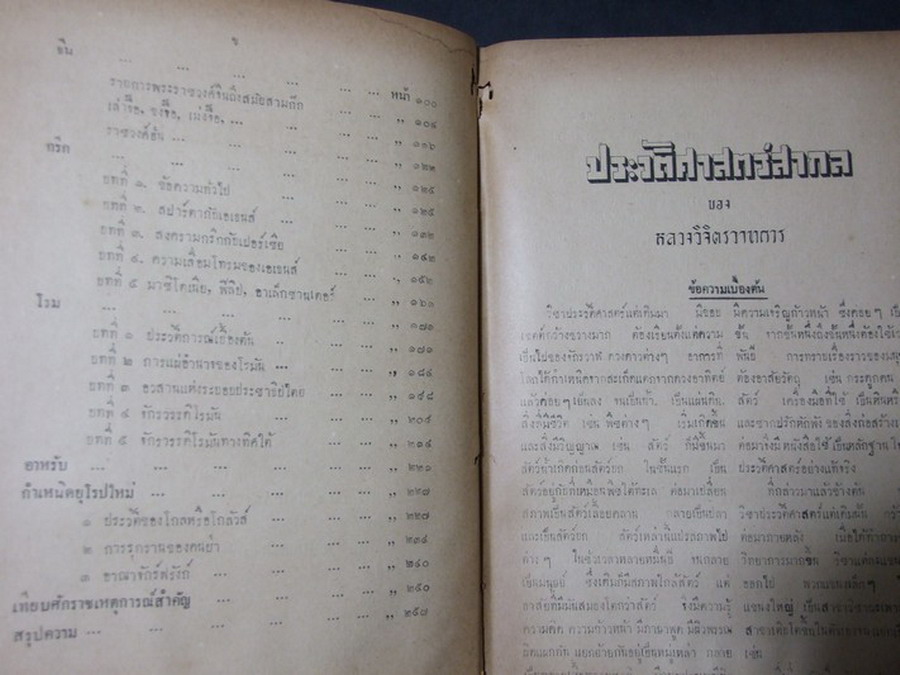 ข
จีน ... ... ... ... ... ... หน้า ๑๐๐
รายการพระราชวงค์จีนถึงสมัยสามก๊ก ... ... ,, ๑๐๔
เล่าจื๊อ, ขงจื๊อ, เม่งจื๊อ, ... ... ... ,, ๑๑๖
ราชวงค์ฮั่น ... ... ... ... ,, ๑๒๒
กรีก ... ... ... ... ... ,, ๑๒๕
บทที่ ๑. ข้อความทั่วไป ... ... ,, ๑๒๕
บทที่ ๒. สปาร์ตากับเอเธนส์ ... ... ,, ๑๓๒
บทที่ ๓. สงครามกริกกับเปอร์เซีย ... ,, ๑๔๒
บทที่ ๔. ความเสื่อมโทรมของเอเธนส์ ... ,, ๑๕๒
บทที่ ๕ มาซิโดเนีย, ฟิลิป, อาเล็กซานเดอร์ ,, ๑๖๑
โรม ... ... ... ... ... ,, ๑๗๑
บทที่ ๑ ประวัติการณ์เบื้องต้น ... ... ,, ๑๗๑
บทที่ ๒ การแผ่อำนาจของโรมัน ... ... ,, ๑๘๔
บทที่ ๓ อวสานแห่งระบอบประชาธิปไตย ... ,, ๑๙๘
บทที่ ๔ จักรวรรดิโรมัน ... ... ,, ๒๐๙
บทที่ ๕ จักรวรรดิโรมันทางทิศใต้ ... ... ,, ๒๑๔
อาหรับ ... ... ... ... ... ,, ๒๒๑
กำเหนิดยุโรปใหม่ ... ... ... ... ,, ๒๒๗
๑ ประวัติของโกลหรือโกลัวส์ ... ... ,, ๒๒๗
๒ การรุกรานของคนป่า ... ... ... ,, ๒๓๔
๓ อาณาจักร์ฟรังก์ ... ... ... ,, ๒๔๐
เทียบศักราชเหตุการณ์สำคัญ ... ... ... ,, ๒๕๐
สรุปความ ... ... ... ... ... ,, ๒๕๗
ประวัติศาสตร์สากล
ของ
หลวงวิจิตรวาทการ
ข้อความเบื้องต้น
วิชาประวัติศาสตร์แต่เดิมมา มีขอบ
เขตต์กว้างขวางมาก ต้องเรียนตั้งแต่ความ
เป็นไปของจักรวาฬ ดวงดาวต่างๆ อาการที่
โลกได้กำเหนิดจากสะเก็ดแตกจากดวงอาทิตย์
แล้วค่อยๆ เย็นลง จนเป็นน้ำ เป็นแผ่นดิน
สิ่งที่มีชีวิต เช่น พืชต่างๆ เริ่มเกิดขึ้น
และสิ่งมีวิญญาณ เช่น สัตว์ ก็มีขึ้นมา
สัตว์น้ำเกิดก่อนสัตว์บก ในชั้นแรก เป็น
สัตว์อยู่กับที่เหมือนพืชใต้ทะเล ต่อมาเปลี่ยน
สภาพเป็นสัตว์เลื้อยคลาน กลายเป็นปลา
และเป็นสัตว์บก สัตว์เหล่านี้แปรสภาพไป
ต่างๆ ในชั่วเวลาหลายหมื่นปี จนกลาย
เป็นมนุษย์ ซึ่งเดิมก็มีสภาพใกล้สัตว์ แต่
อาศัยที่มีมันสมองโตกว่าสัตว์ จึงมีความรู้
ความคิด ความก้าวหน้า มีภาษาพูด มีผิวพรรณ
ผิดแผกกัน แยกย้ายกันอยู่เป็นหมู่เหล่า กลาย
มีความเจริญก้าวหน้า ซึ่งค่อยๆ
ขึ้น จากขั้นหนึ่งถึงขั้นหนึ่งต้องใช้เว
พันปี การทราบเรื่องราวของมนุ
ต้องอาศัยวัตถุ เช่น กระดูกคน
สัตว์ เครื่องมือที่ใช้ เป็นต้น
และซากปรักหักพัง ของสิ่งก่อสร้าง
ต่อมาจึงมีหนังสือใช้ เป็นหลักฐาน
ประวัติศาสตร์อย่างแท้จริง
ที่กล่าวมาแล้วข้างต้น
วิชาประวัติศาสตร์แต่เดิมนั้น
ต่อมาภายหลัง เมื่อได้ทำการ
วิทยาการมากขึ้น
ออกไป
แขนงใหญ่
เช่น